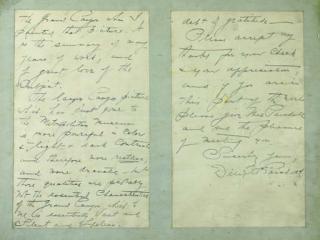 the Grand Canyon when I
painted that picture. It
is the summary of many
years of work, and
a great love of the
subject.
The larger Canyon picture
that has just gone to
the Metropolitan Museum
is more powerful in Color
& light & dark Contrast
and therefore more restless,
and more dramatic but
those qualities are probably
not the essential Characteristics
of the Grand Canyon which to
me is essentially vast and
silent and
debt of gratitude
Please accept my
thanks for your Check
& your appreciation,
and if you are in
this part of the
please give Mrs
and me the pleasure
of meeting you
Sincerely yours